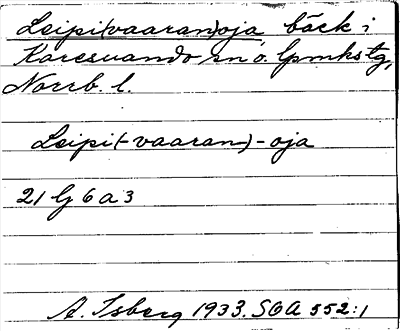 Leipi(vaaran)oja bäck i
Karesuando sn o. lpmkstg,
Norrb. l.
Leipi(-vaaran-)-oja
21 G 6 a 3
A. Isberg 1933. SOA 552:1